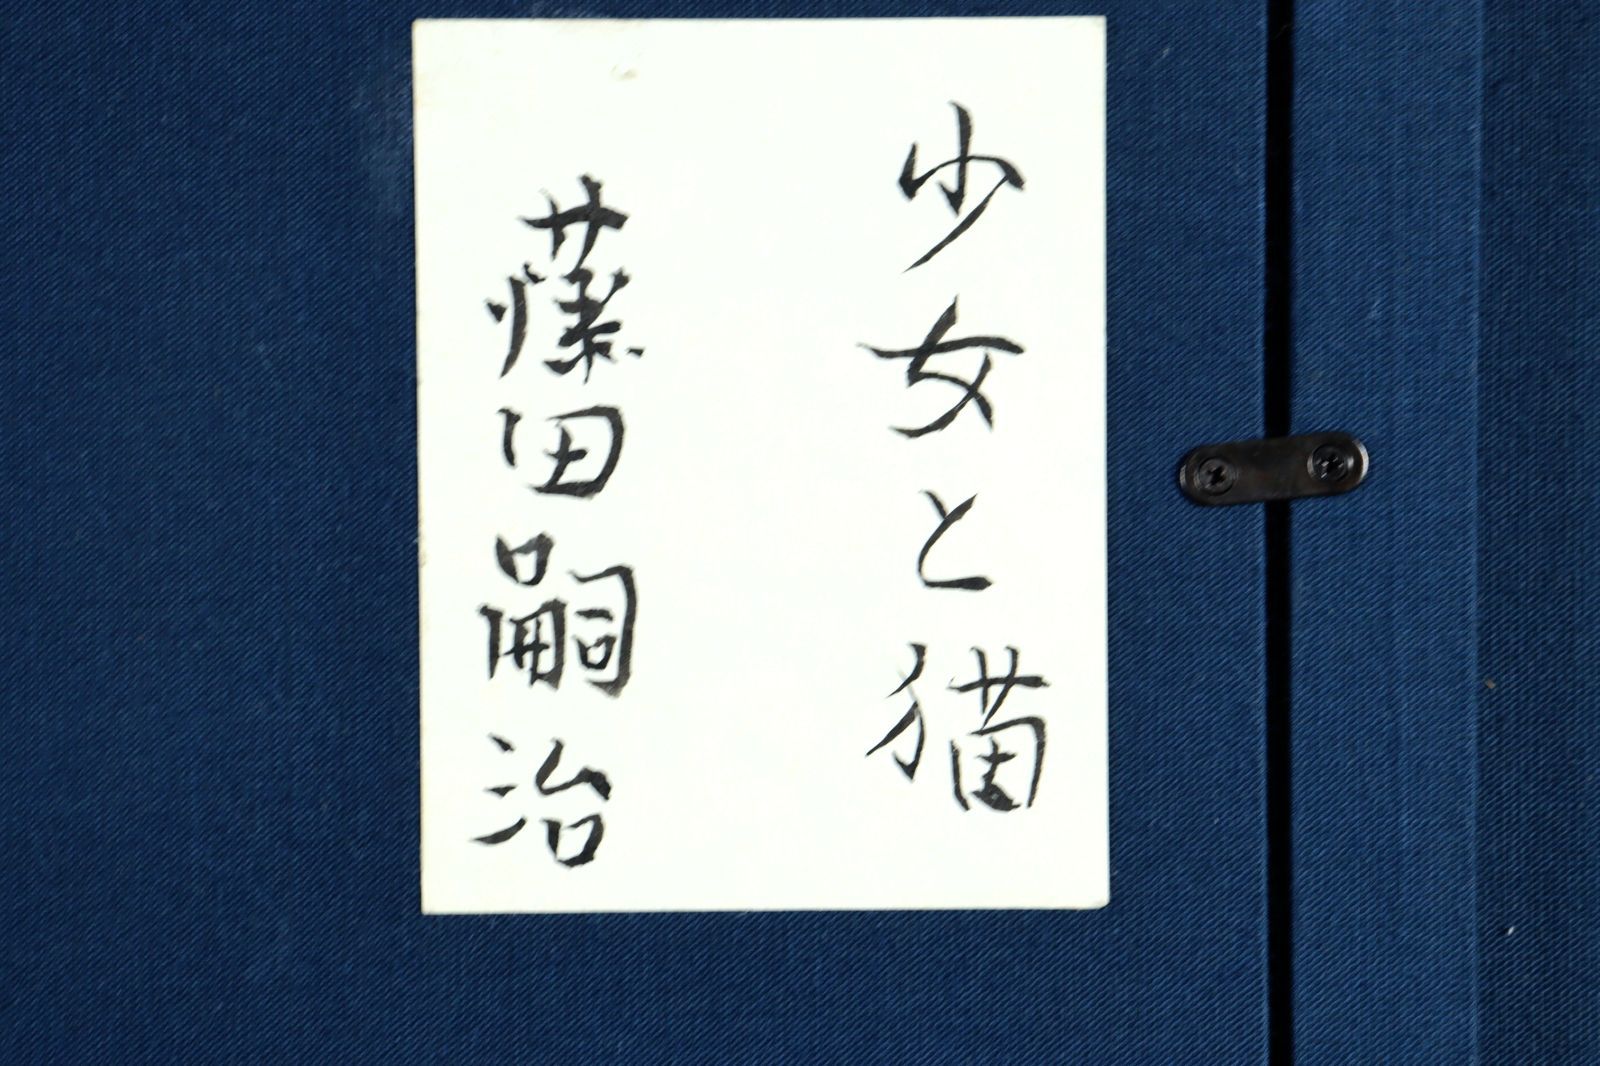 少女と猫
藤田嗣治